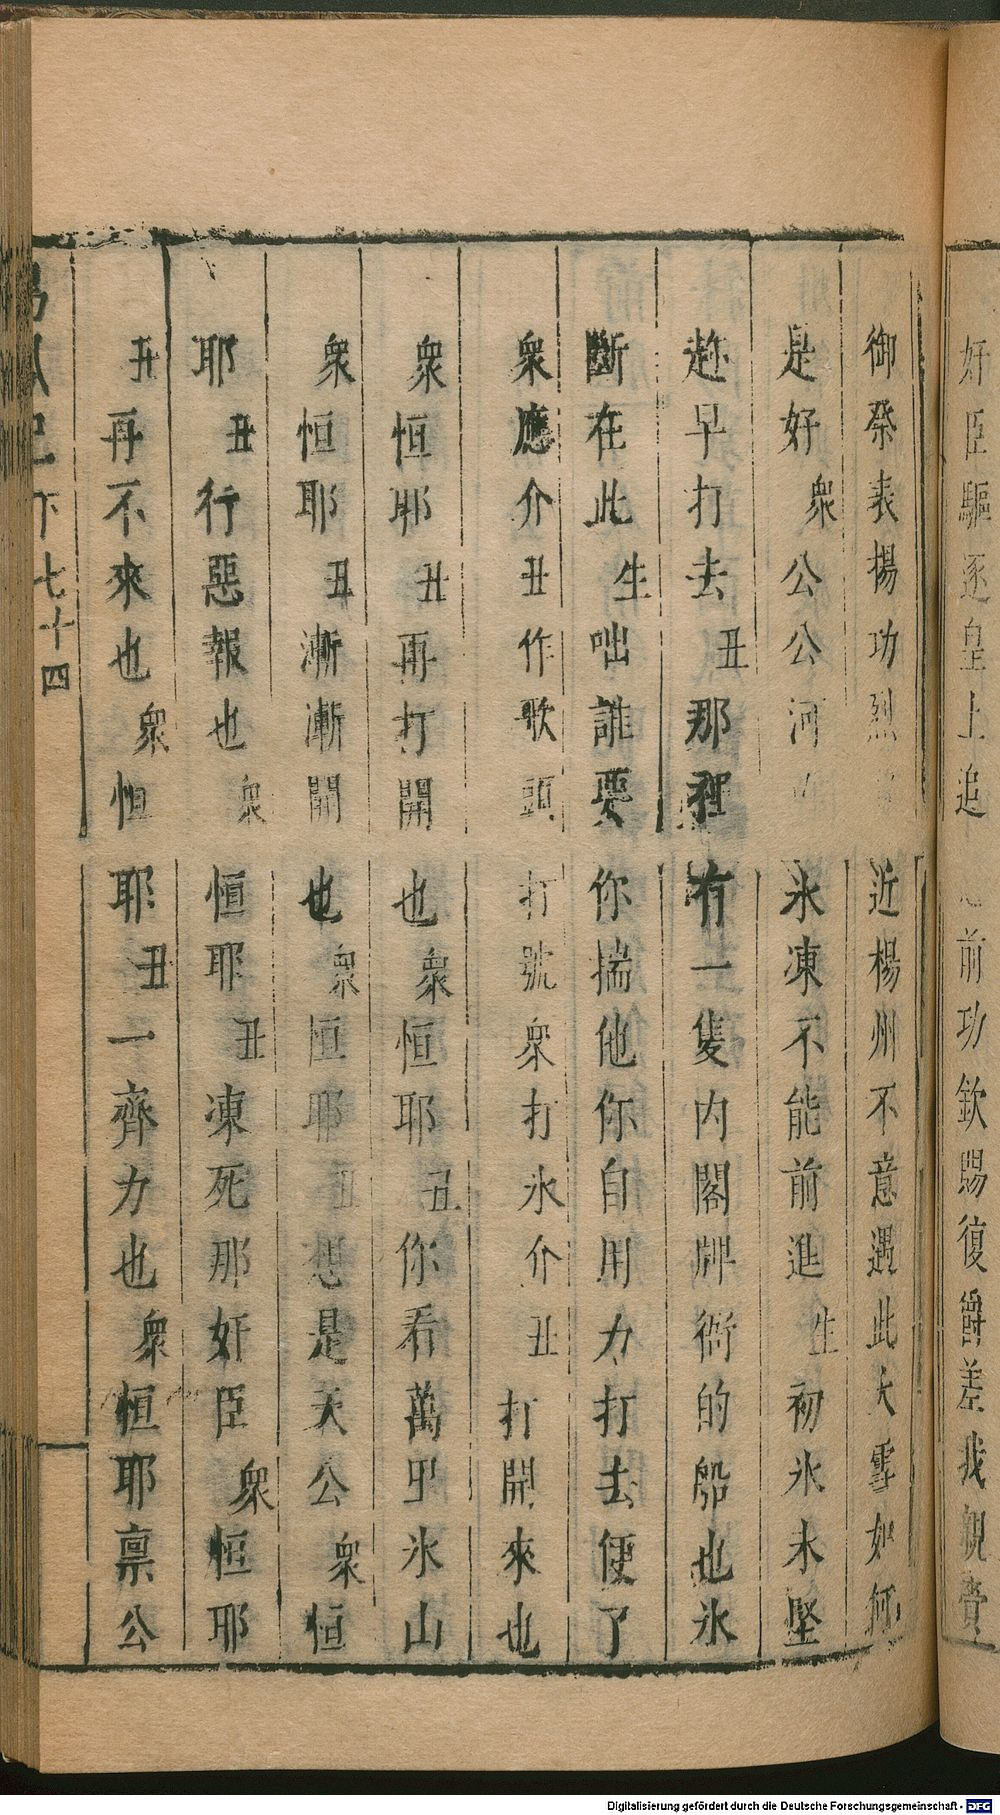 好臣驅逐皇上追前功欽賜復爵差我親賫
御祭表揚功烈近楊州不意遇此大雪如何
是好衆公公河氷凍不能前進生初氷未堅
趂早打去丑那裡有一隻内閣牌衙的船也氷
斷在此生咄誰要你揣他你自用力打去便了
衆應介丑作歌頭打號衆打氷介丑打開來也
衆恒耶丑再打開也衆恒耶丑你看萬里氷山
衆恒耶丑漸漸開也衆恒耶丑想是天公衆恒
耶丑行惡報也衆恒耶丑凍死那奸臣衆恒耶
丑再不來也衆恒耶丑一齊力也衆恒耶禀公
記下七十四
Digitalisierung gefördert durch die Deutsche Forschungsgemeinschaft - DFG